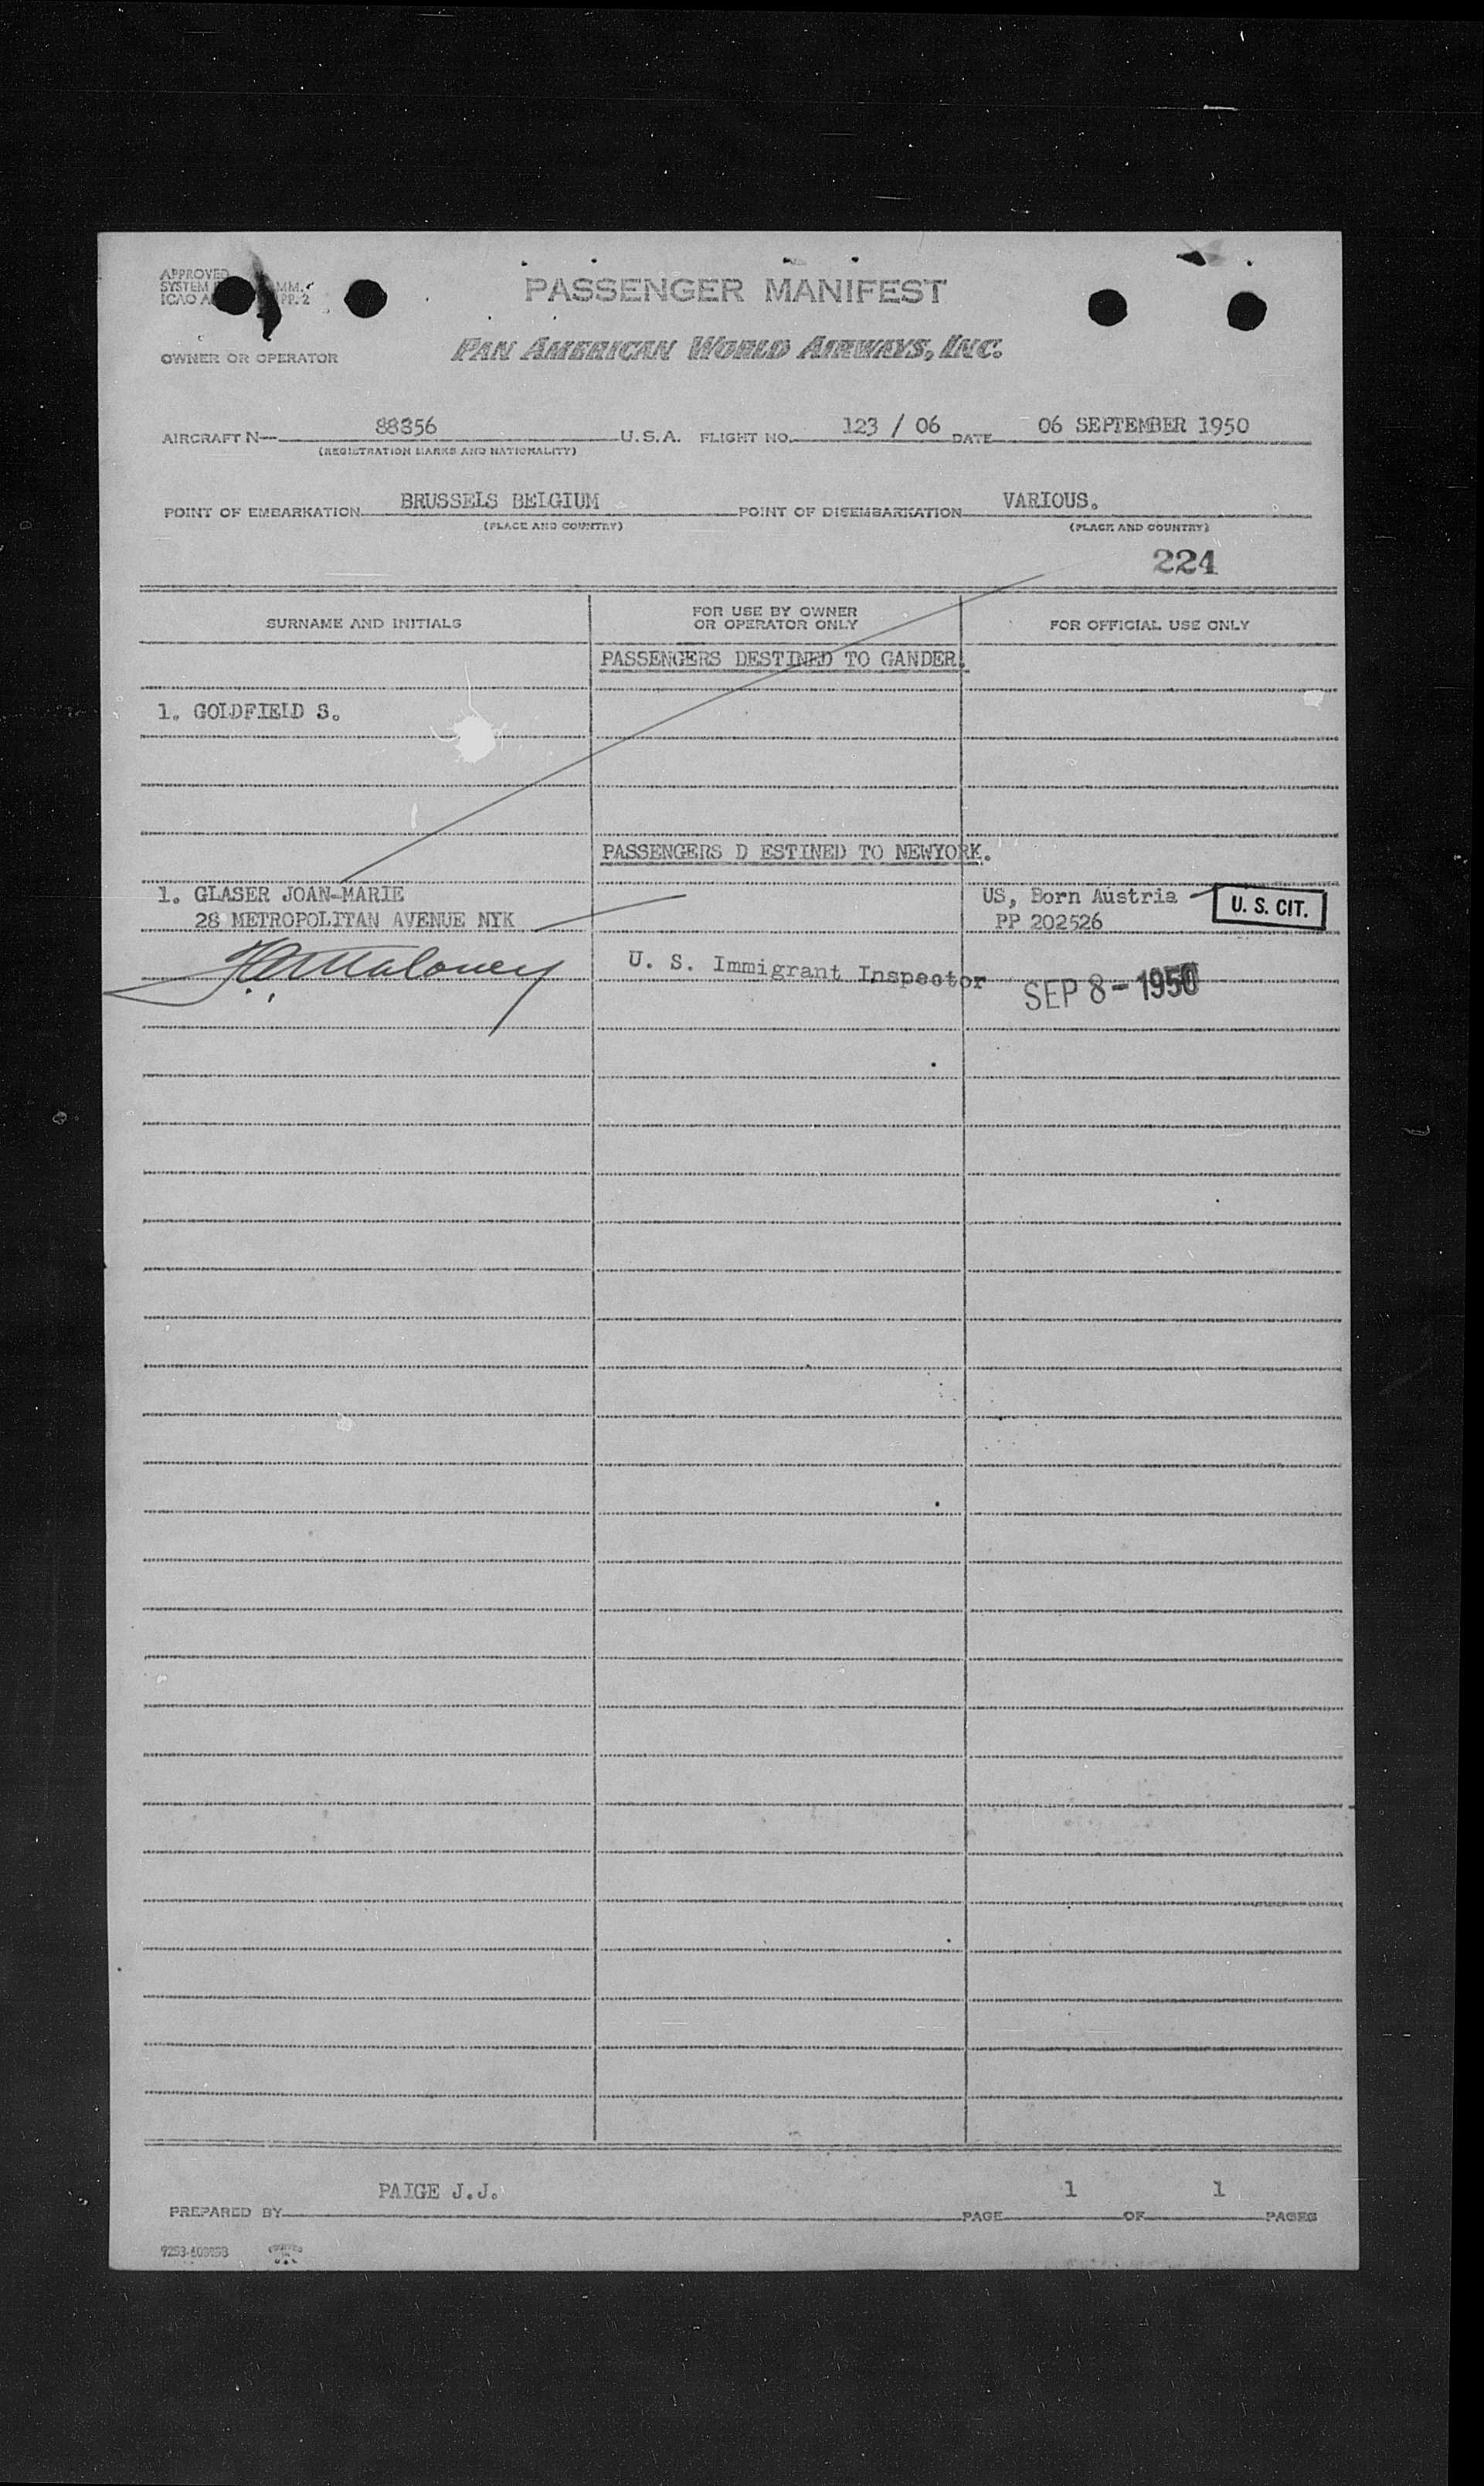 APPROVED
SYSTEM MM.
ICAO A PP. 2
PASSENGER MANIFEST
OWNER OR OPERATOR
PAN AMERICAN WORLD AIRWAYS, INC.
AIRCRAFT N— 88856 U.S.A. FLIGHT NO. 123 / 06 DATE 06 SEPTEMBER 1950
(REGISTRATION MARKS AND NATIONALITY)
POINT OF EMBARKATION BRUSSELS BELGIUM POINT OF DISEMBARKATION VARIOUS.
(PLACE AND COUNTRY) (PLACE AND COUNTRY)
224
SURNAME AND INITIALS FOR USE BY OWNER OR OPERATOR ONLY FOR OFFICIAL USE ONLY
PASSENGERS DESTINED TO GANDER.
1. GOLDFIELD S.
PASSENGERS D ESTINED TO NEWYORK.
1. GLASER JOAN-MARIE US, Born Austria U. S. CIT.
28 METROPOLITAN AVENUE NYK PP 202526
Maloney U. S. Immigrant Inspector SEP 8 - 1950
PREPARED BY PAIGE J.J. PAGE 1 OF 1 PAGES